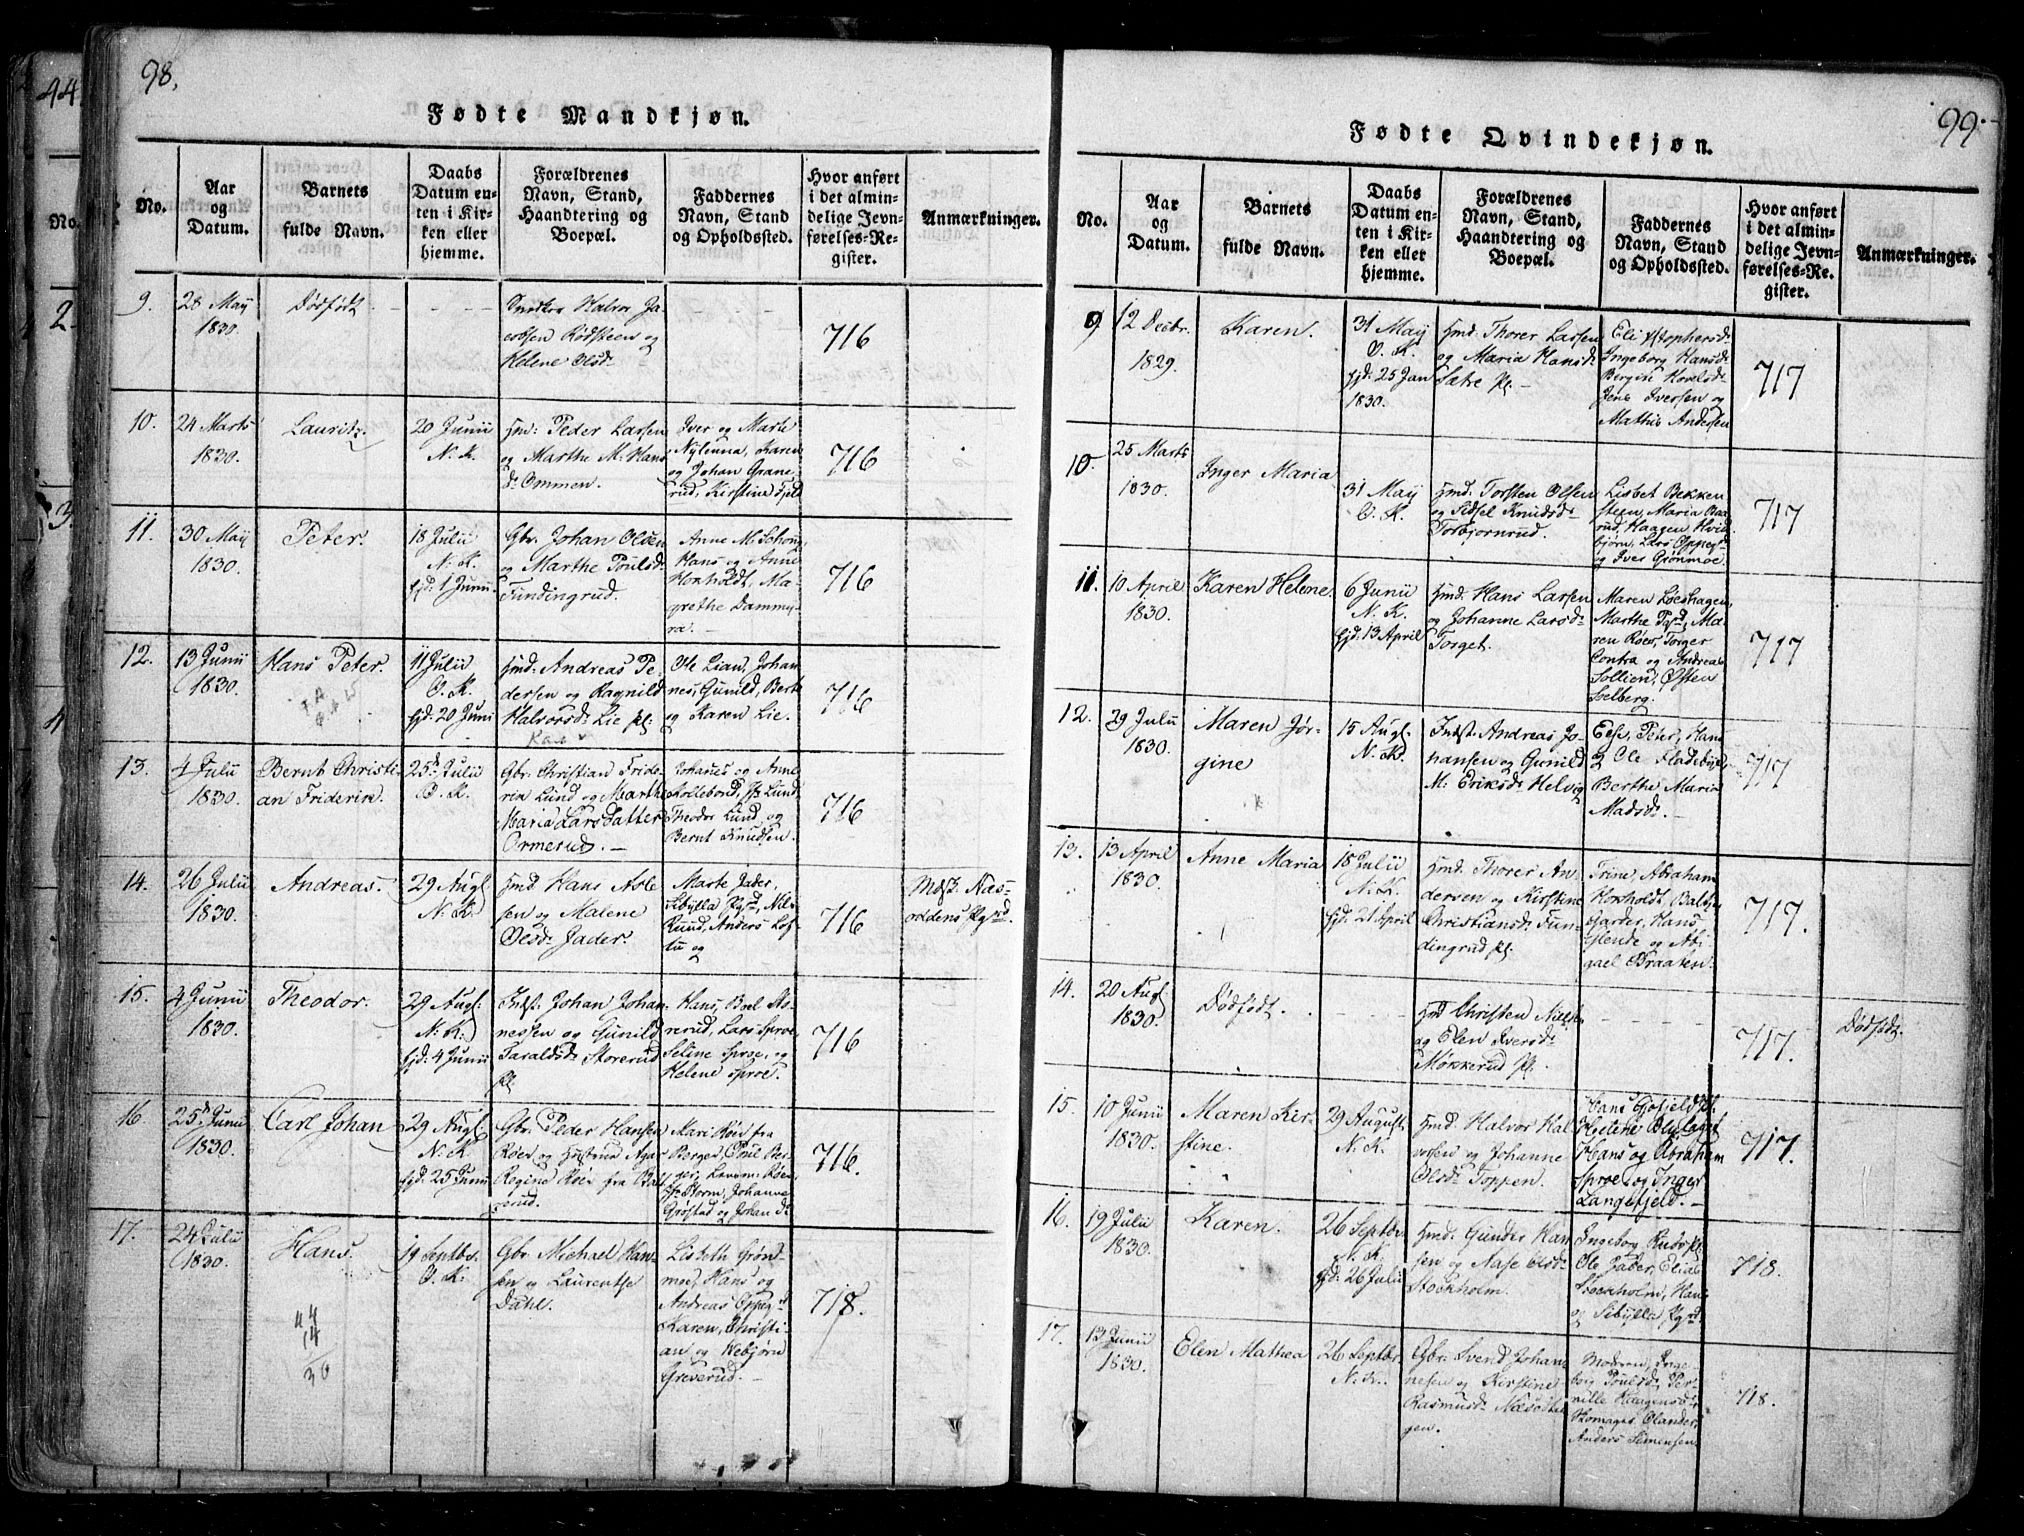 98.
Fødte Mandkjøn.
No.
Aar
og
Datum.
Barnets
fulde Navn.
Daabs
Datum en-
ten i Kir-
ken eller
hjemme.
Forældrenes
Navn, Stand,
Haandtering og
Boepæl.
Faddernes
Navn, Stand
og Opholdssted.
Hvor anført
i det almin-
delige Jevn-
førelses-Re-
gister.
Anmærkninger.
9.
28 May
1830.
Dødfødt
Halvor Ja-
cobsen Rødsteen og
Helene Olsd.
716
10.
24 Marts
1830.
Lauritz.
20 Junii
N. K.
Hmd: Peder Larsen
og Marthe M. Hans
d: Ommen.
Iver og Marte
Nylenna, Karen
og Johan Grane-
rud, Kirstine Fjeld
716
11.
30 May
1830.
Peter.
18 Julii
N. K.
hjd: 1 Junii
Gbr. Johan Olsen
og Marthe Poulsd:
Fundingrud.
Anne M. Schong,
Hans og Anne
Hornholdt, Ma-
grethe Dammy-
ra. —
716
12.
13 Junii
1830.
Hans Peter.
11 Julii
O. K.
hjd: 20 Juni
Hmd: Andreas Pe-
dersen og Ragnild
Halvorsd: Lie pl:
Ole Lian, Johan-
nes, Gunild, Berte
og Karen Lie.
716
13.
4 Julii
1830.
Bernt Christi-
an Friderik.
25d Julii
O. K.
Gbr: Christian Fride-
ren Lund og Marthe
Maria Larsdatter
Ormerud. —
Johanes og Anne
Kollebord, Lund,
Theodor Lund, og
Bernt Knudsen.
716
14.
26 Julii
1830.
Andreas.
29 Augt
N. K.
Hmd: Hans Asle-
sen og Malene
Olsd: Jader.
Marte Jader,
Sibylla Pgrd, Nils
Rund, Anders Lof-
tu og
716
Mdst. Næs-
oddens Pgrd.
15.
4 Junii
1830.
Theodor.
29 Augt.
N. K.
hjd: 4 Junii
Indst: Johan Johan-
nessen og Gunild
Taraldsd: Storerud
pl
Hans, Boel
rerud, Lars Sproe,
Seline Sproe, og
Helene Sproe.
716
16.
25d Junii
1830.
Carl Johan
29 Augt
N. K.
hjd: 25 Junii
Gbr: Peder Hansen
Røer og Hustrue Agn
Regine Røer fra
rerud.
Mari Røer fra
Berger, Poul Ber-
ger,
Storm, Johanne
Grøstad og Johan do
716.
17.
24 Julii
1830.
Hans.
19 Septbr.
O. K.
Gbr: Michael Han-
sen og Laurentse
Dahl.
Lisbeth Grønd-
moe, Hans og
Andreas Oppegrd
Karen, Christi-
an og Hebjørn
Greverud. —
718.
44
14
30
99.
Fødte Qvindekjøn.
No.
Aar
og
Datum.
Barnets
fulde Navn.
Daabs
Datum en-
ten i Kir-
ken eller
hjemme.
Forældrenes
Navn, Stand,
Haandtering og
Boepæl.
Faddernes
Navn, Stand
og Opholdssted.
Hvor anført
i det almin-
delige Jevn-
førelses-Re-
gister.
Anmærkninger.
9
12 Decbr.
1829.
Karen.
31 May
O. K.
hjd: 25 Jan
1830.
Hmd: Thorer Larsen
og Maria Hansd:
Satre pl. —
Eli Xstophersd:
Ingeborg Hansd:
Bergite Hovelsd:
Jens Iversen og
Mathis Andersen
717
10.
25 Marts
1830.
Inger Maria
31 May
O. K.
Hmd: Torsten Olsen
og Sidsel Knudsd:
Torbjørnrud.
Lisbet Bekken-
steen, Maria Baa-
rud, Haagen Hvid-
bjørn, Lars Oppegrd
og Iver Grønmoe.
717
11.
10 April
1830.
Karen Helene.
6 Junii
N. K.
hjd: 13 April
Hmd: Hans Larsen
og Johanne Larsd:
Torget.
Maren Løeshagen,
Marthe Pgrd, Ma-
ren Røer, Torger
Contra og Andreas
Sollien, Østen
Solberg.
717
12.
29 Julii
1830.
Maren Jør-
gine
15 Augt.
N. K.
Indst: Andreas Jo-
hansen og Gunild
M: Eriksd: Helvig
Else, Peter, Hans
og Ole Fladebye,
Berthe Maria
Madsd: —
717
13.
13 April
1830.
Anne Maria
18 Julii
N. K.
hjd: 21 April
Hmd: Thorer An-
dersen og Kirstine
Christiansd: Fun-
dingrud pl.
Trine, Abraham
Hornholdt, Baltz.
Garder, Hans
Glende og Abi-
gael Braaten.
717.
14.
20 Augt
1830.
Dødfødt.
Hmd Christen Nilsen
og Elen Iversd:
Mokkerud Pl.
717.
Dødfødt.
15.
10 Junii
1830.
Maren Kir-
stine.
29 August
N. K.
Hmd: Halvor Hal-
vorsen og Johanne
Olsd: Toppen.
Hans Gjøfjeld pl.
Helene
Hans og Abraham
Sproe og Inger
Langefjeld. —
717.
16.
19 Julii
1830.
Karen.
26 Septbr.
N. K.
hjd: 26 Julii
Hmd: Gunder Han-
sen og Aase Olsd:
Stockholm.
Ingeborg Ruds pl.
Ole Jader, Elias
Stockholm, Hans
og Sibylla Pgrd
718.
17.
13 Junii
1830.
Elen Mathea
26 Septbr.
N. K.
Gbr: Svend Johan-
nesen og Kirstine
Rasmusd: Næsodtan-
gen.
Moderen, Inge-
borg Poulsd:, Per-
nille Haagensd:,
Skomager Olander,
Anders Simensen.
718.
44.
No.
2.
3.
4